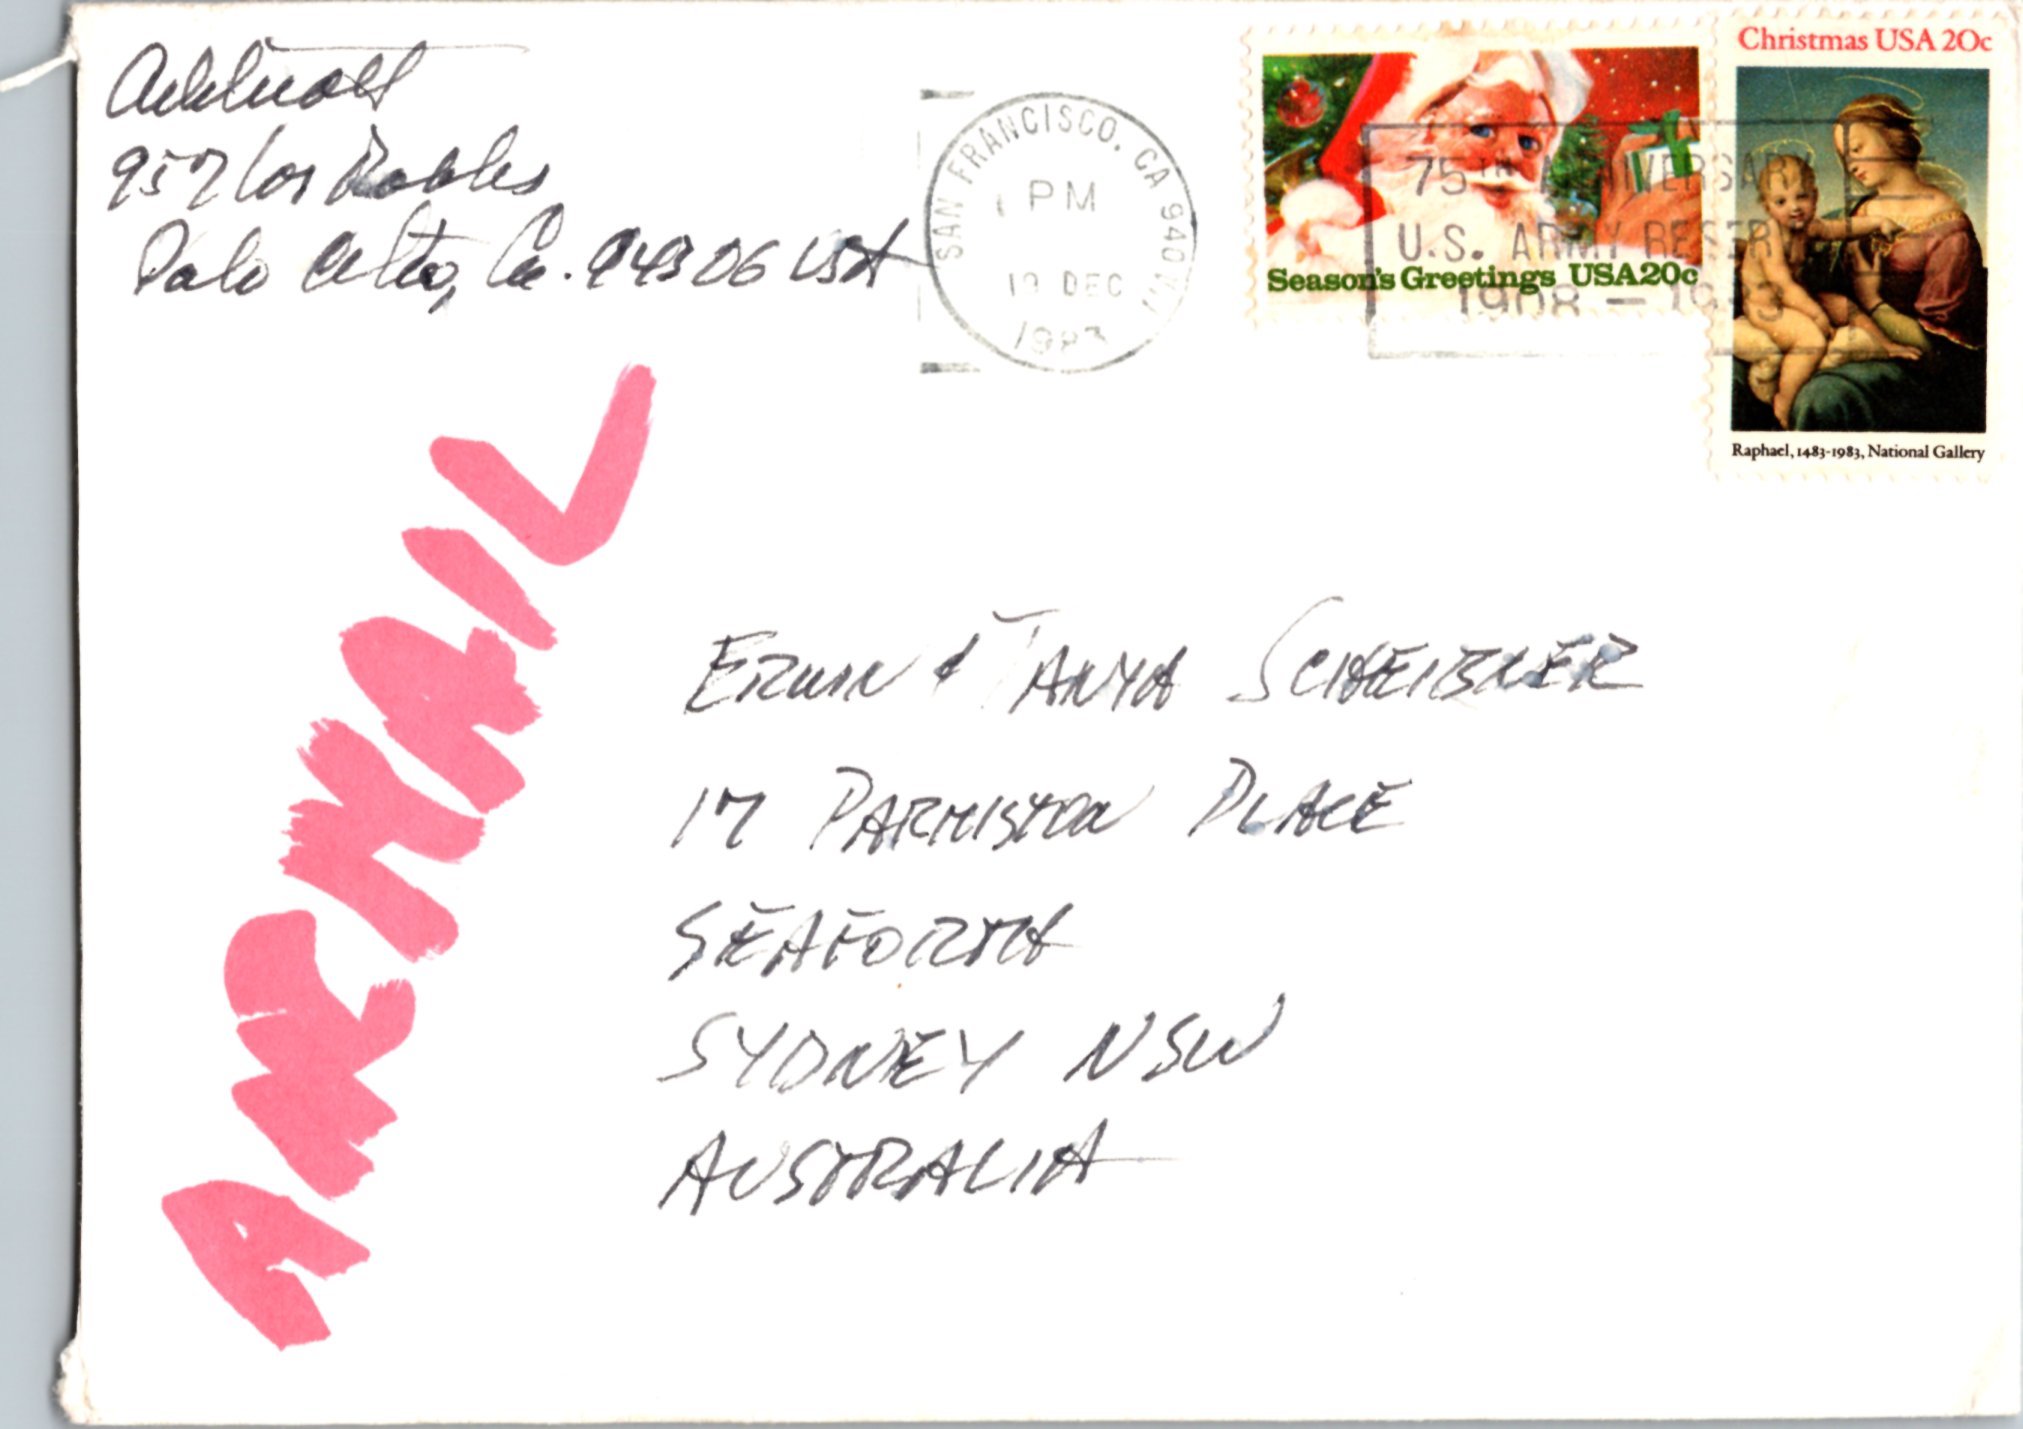 957 Los Robles
Palo Alto, Ca. 94306 USA
SAN FRANCISCO, CA 940
PM
19 DEC
1983
75TH ANNIVERSARY
U.S. ARMY RESERVE
1908 - 1983
Season's Greetings USA20c
Christmas USA 20c
Raphael, 1483-1983, National Gallery
AIR MAIL
ERWIN & TANYA SCHEIBNER
17 PARMISTON PLACE
SEAFORTH
SYDNEY NSW
AUSTRALIA